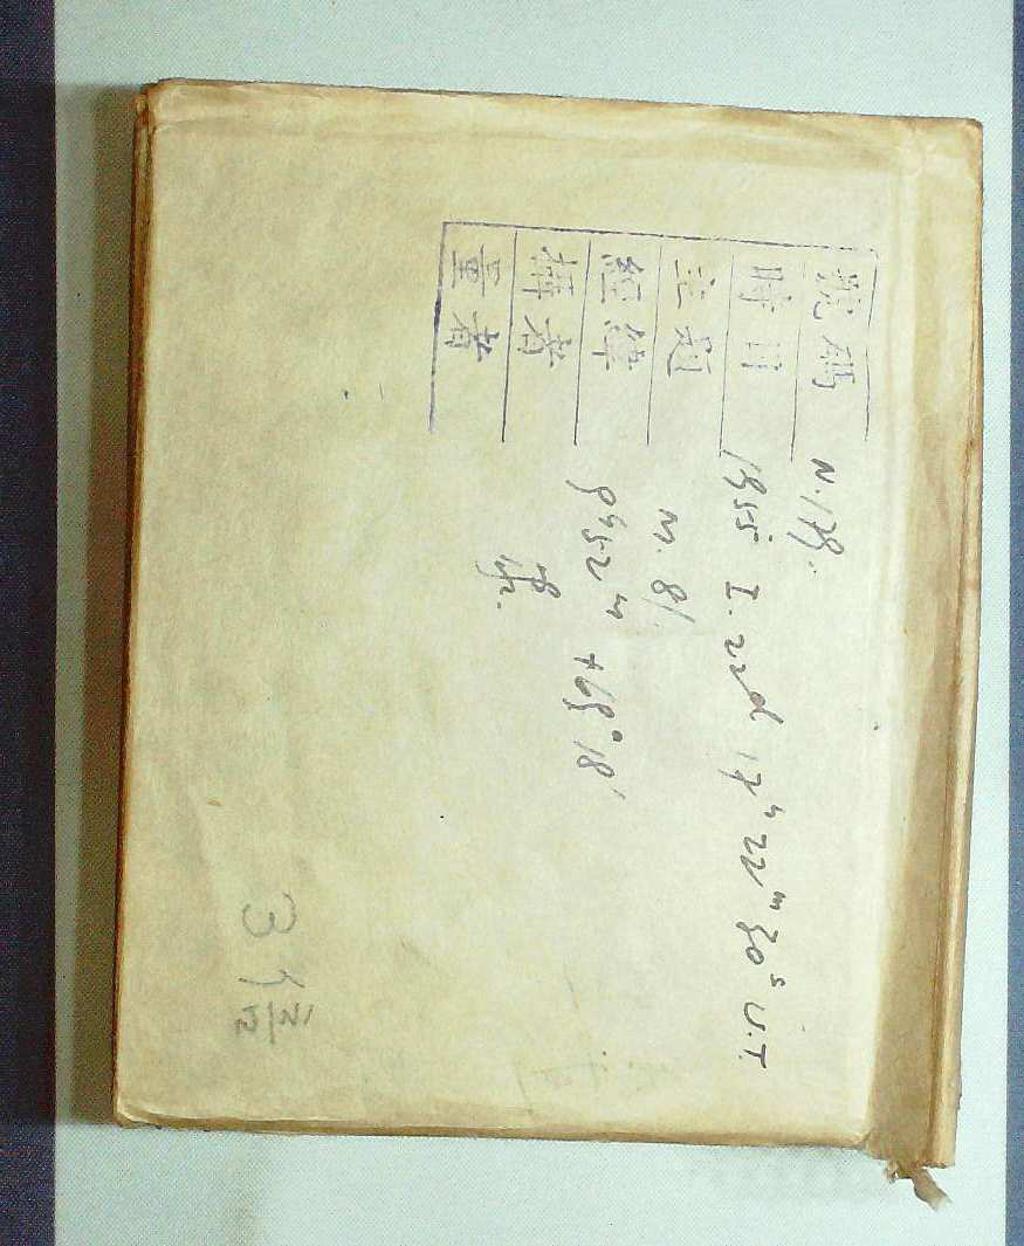 號碼 N.178.
時日 1955 I. 22d 17h 22m 30s U.T
主題 M. 81
經緯 9h 52m +69° 18'
攝者
量者